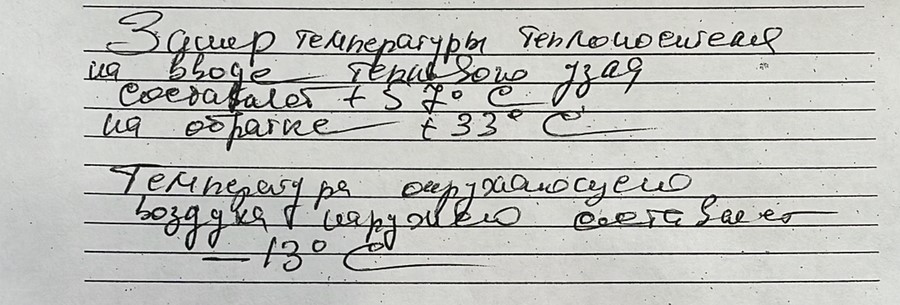 Замер температуры теплоносителя
на вводе теплового узла
составляет + 57° С
на обратке + 33° С
Температура окружающего
воздуха наружного составляет
— 13° С